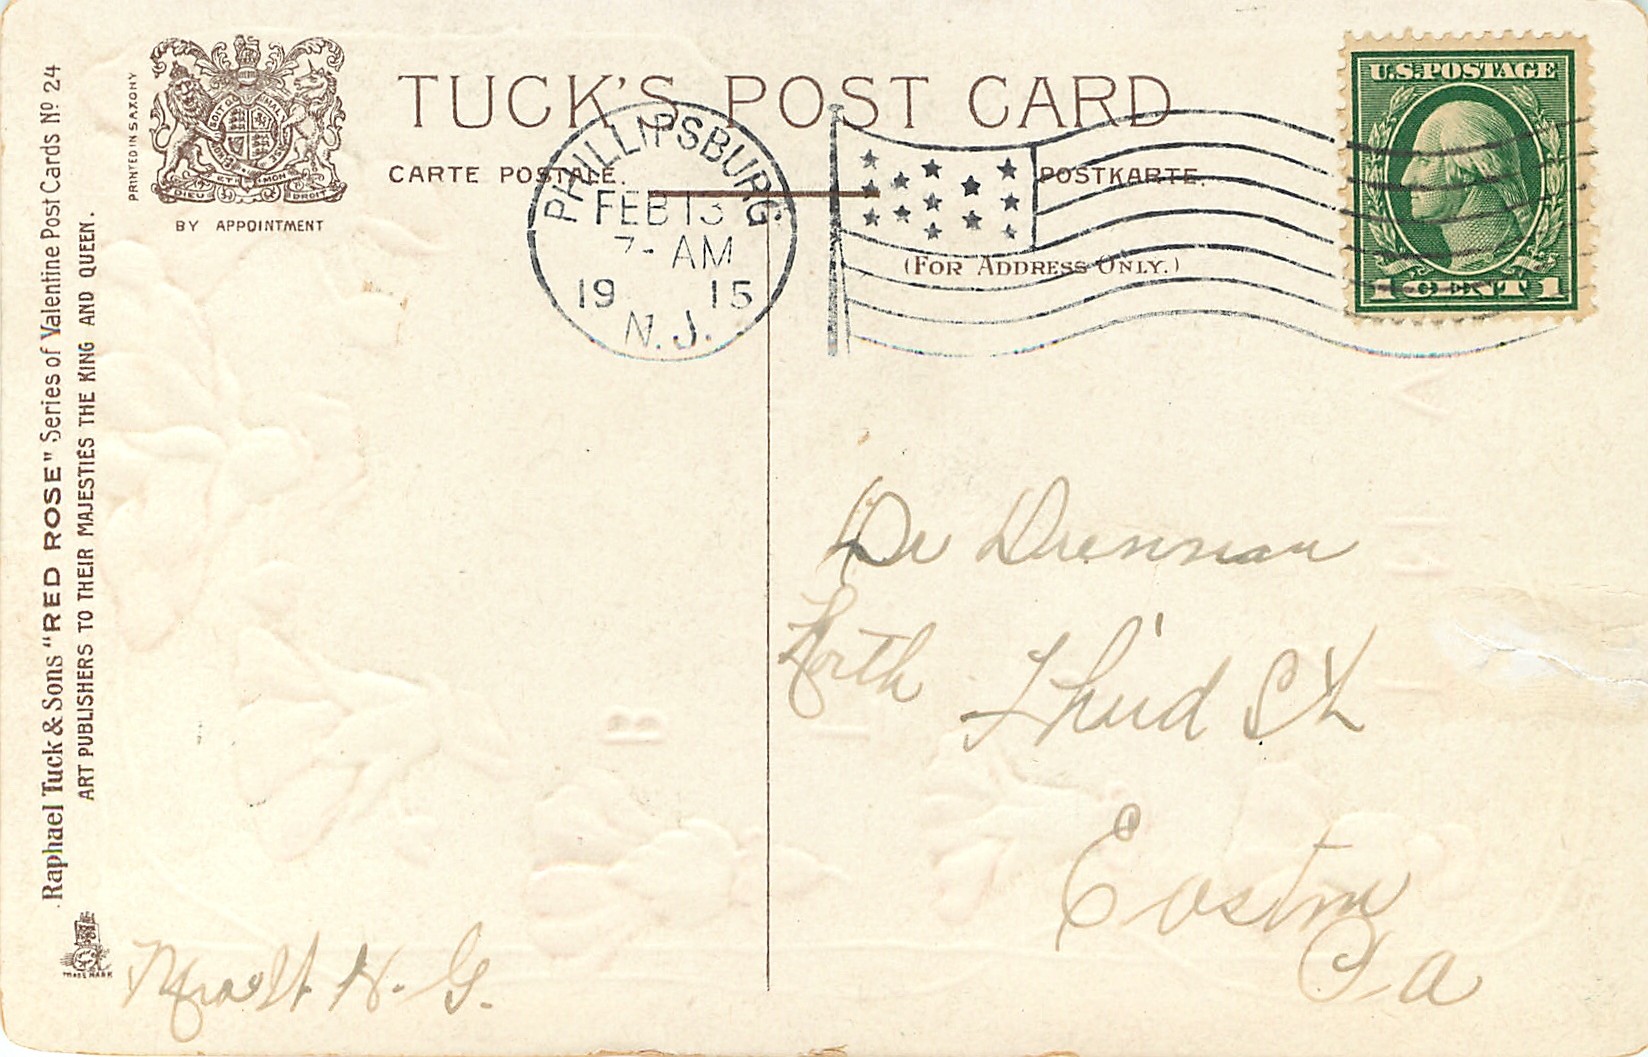 TUCK'S POST CARD
CARTE POSTALE.
POSTKARTE.
(FOR ADDRESS ONLY.)
PRINTED IN SAXONY
BY APPOINTMENT
Raphael Tuck & Sons "RED ROSE" Series of Valentine Post Cards Nº 24
ART PUBLISHERS TO THEIR MAJESTIES THE KING AND QUEEN.
TRADE MARK
PHILLIPSBURG
FEB 13
7- AM
19 15
N.J.
U.S. POSTAGE
1 CENT 1
Dr Drennan
North Third St
Easton
Pa
H. G.